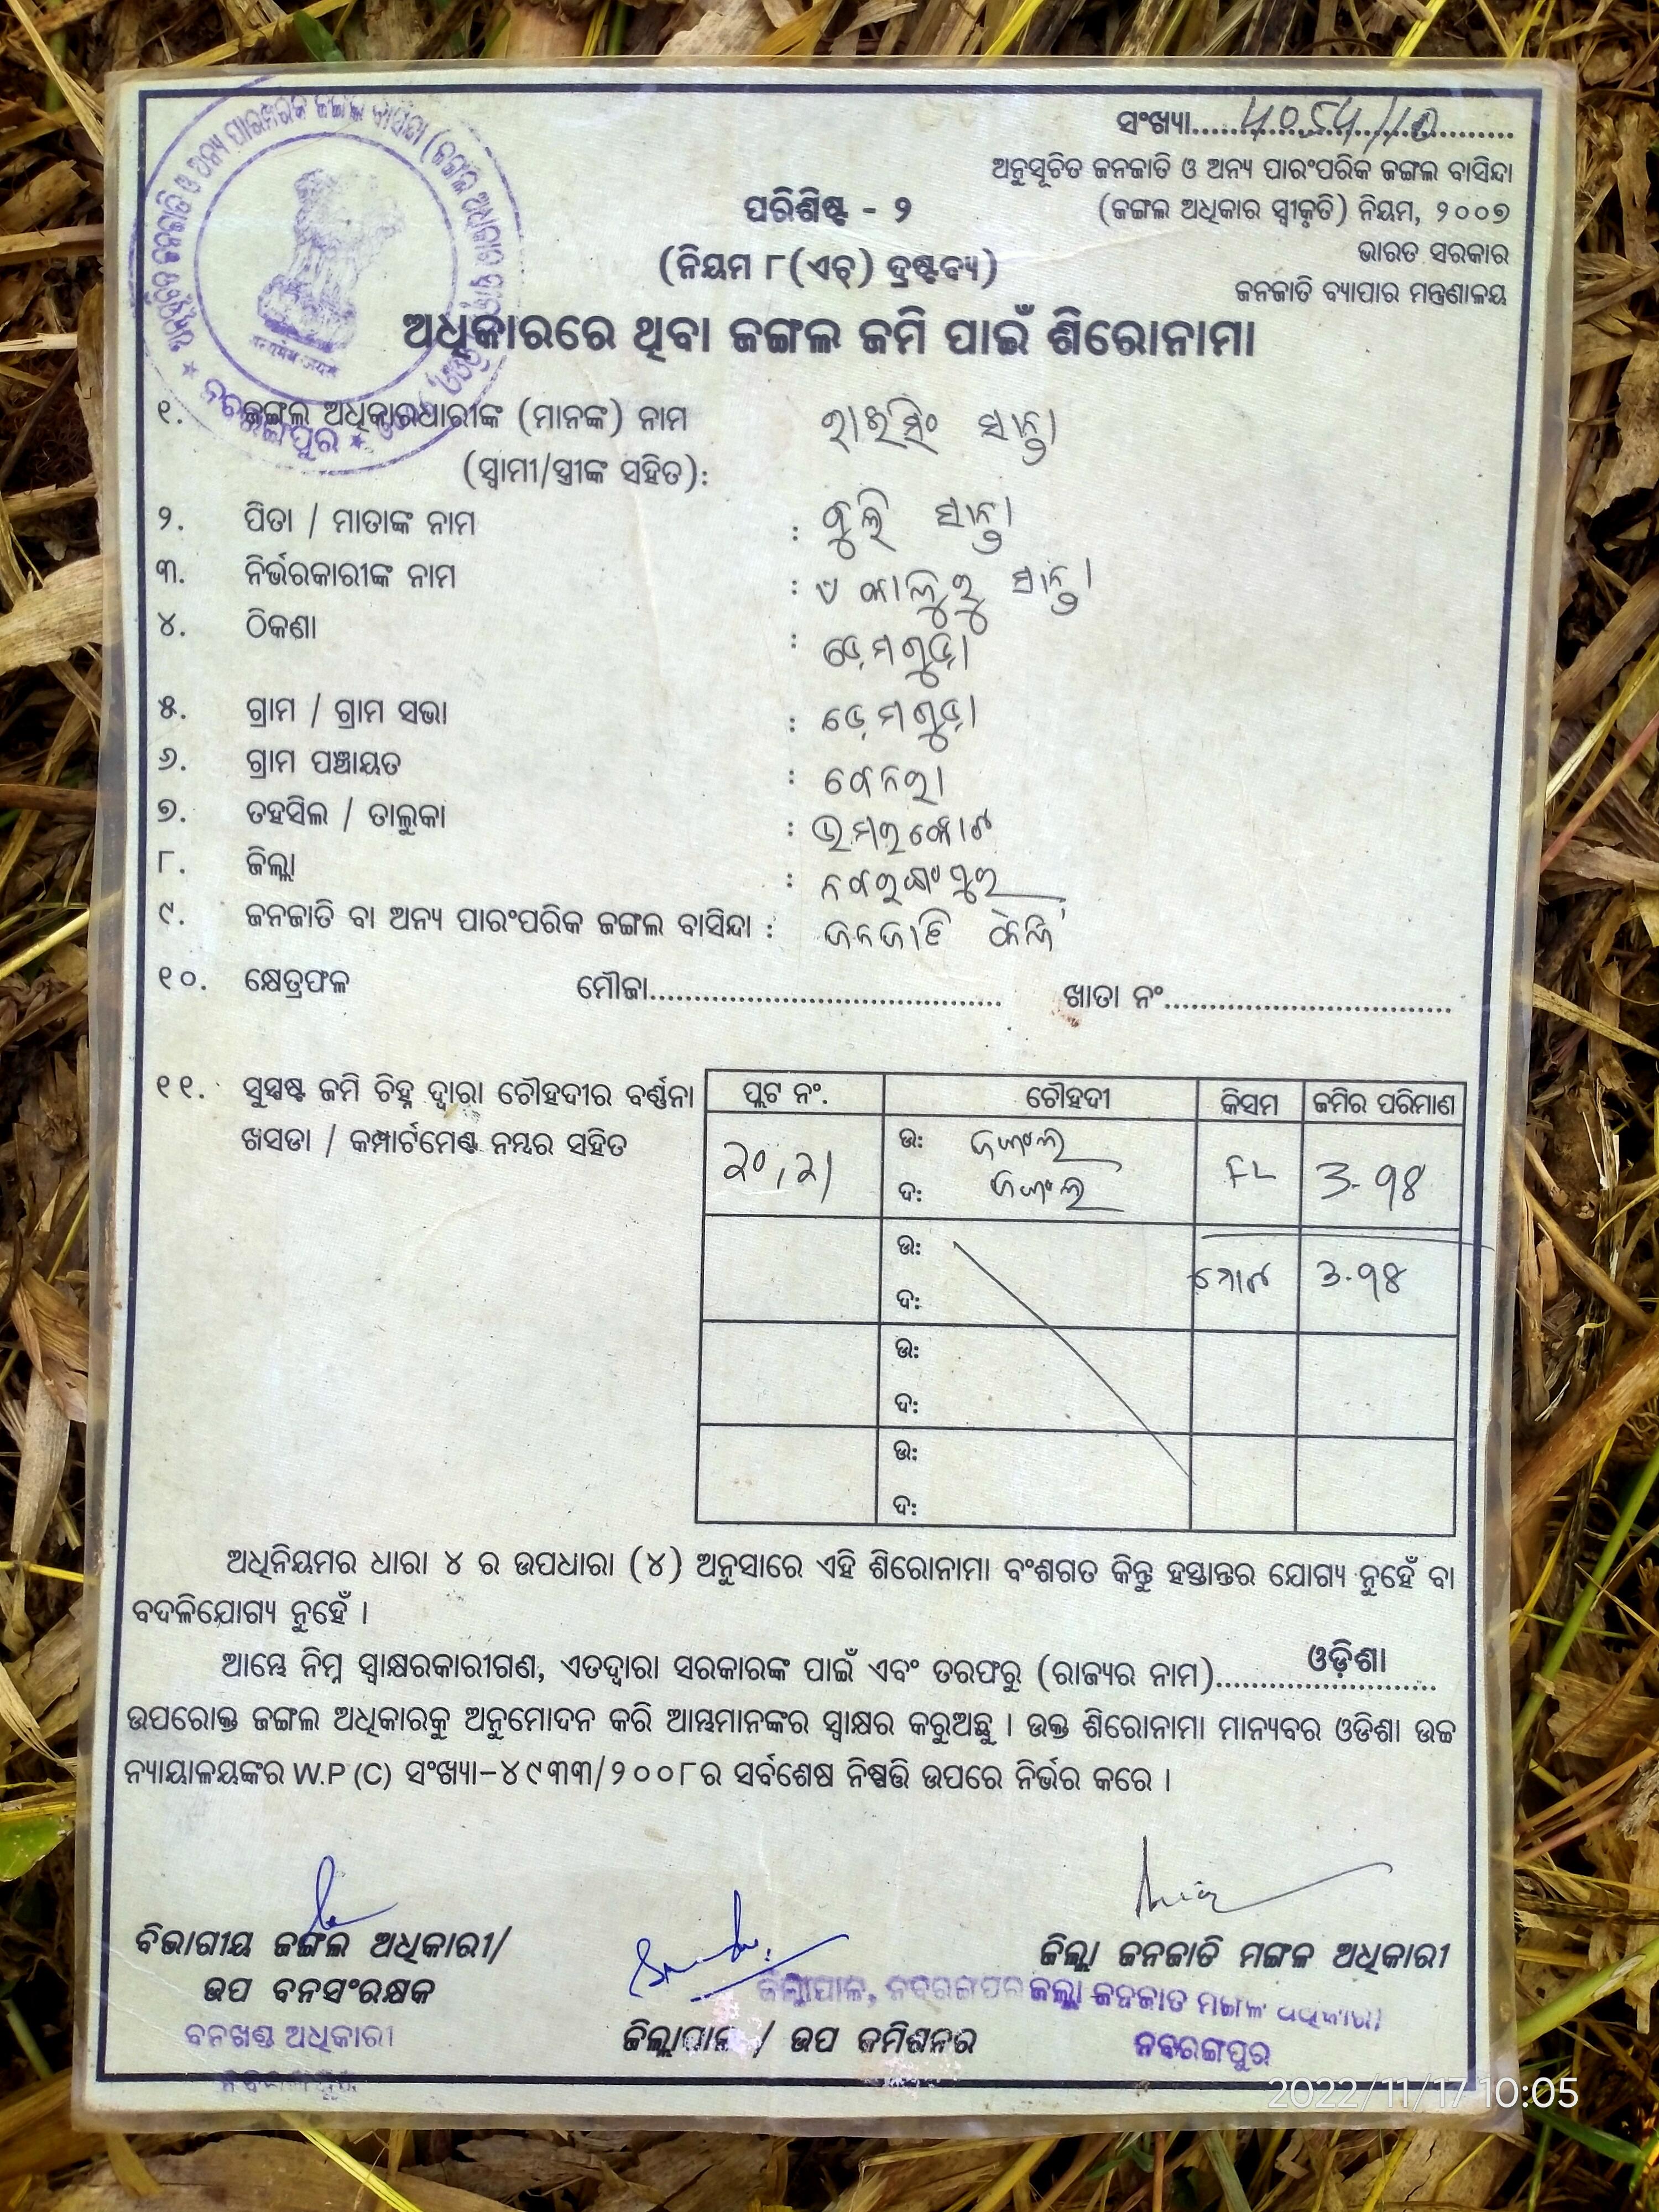 ସଂଖ୍ୟା
ଅନୁସୂଚିତ ଜନଜାତି ଓ ଅନ୍ୟ ପାରଂପରିକ ଜଙ୍ଗଲ ବାସିନ୍ଦା
(ଜଙ୍ଗଲ ଅଧିକାର ସ୍ୱୀକୃତି) ନିୟମ, ୨୦୦୭
ଭାରତ ସରକାର
ଜନଜାତି ବ୍ୟାପାର ମନ୍ତ୍ରଣାଳୟ
ପରିଶିଷ୍ଟ - ୨
(ନିୟମ ୮(ଏଚ୍) ଦ୍ରଷ୍ଟବ୍ୟ)
ଅଧିକାରରେ ଥିବା ଜଙ୍ଗଲ ଜମି ପାଇଁ ଶିରୋନାମା
୧. ଜଙ୍ଗଲ ଅଧିକାରଧାରୀଙ୍କ (ମାନଙ୍କ) ନାମ ସାନ୍ତା
(ସ୍ୱାମୀ/ସ୍ତ୍ରୀଙ୍କ ସହିତ):
୨. ପିତା / ମାତାଙ୍କ ନାମ : ସାନ୍ତା
୩. ନିର୍ଭରକାରୀଙ୍କ ନାମ : ସାନ୍ତା
୪. ଠିକଣା :
୫. ଗ୍ରାମ / ଗ୍ରାମ ସଭା :
୬. ଗ୍ରାମ ପଞ୍ଚାୟତ :
୭. ତହସିଲ / ତାଲୁକା : ଉମରକୋଟ
୮. ଜିଲ୍ଲା : ନବରଙ୍ଗପୁର
୯. ଜନଜାତି ବା ଅନ୍ୟ ପାରଂପରିକ ଜଙ୍ଗଲ ବାସିନ୍ଦା : ଜନଜାତି
୧୦. କ୍ଷେତ୍ରଫଳ ମୌଜା ଖାତା ନଂ
୧୧. ସୁସ୍ପଷ୍ଟ ଜମି ଚିହ୍ନ ଦ୍ୱାରା ଚୌହଦୀର ବର୍ଣ୍ଣନା
ଖସଡା / କମ୍ପାର୍ଟମେଣ୍ଟ ନମ୍ବର ସହିତ
ପ୍ଲଟ ନଂ. ଚୌହଦୀ କିସମ ଜମିର ପରିମାଣ
ଉ: ଜଙ୍ଗଲ
ଦ: ଜଙ୍ଗଲ
ଉ:
ମୋଟ
ଦ:
ଉ:
ଦ:
ଉ:
ଦ:
ଅଧିନିୟମର ଧାରା ୪ ର ଉପଧାରା (୪) ଅନୁସାରେ ଏହି ଶିରୋନାମା ବଂଶଗତ କିନ୍ତୁ ହସ୍ତାନ୍ତର ଯୋଗ୍ୟ ନୁହେଁ ବା
ବଦଳିଯୋଗ୍ୟ ନୁହେଁ ।
ଆମ୍ଭେ ନିମ୍ନ ସ୍ୱାକ୍ଷରକାରୀଗଣ, ଏତଦ୍ୱାରା ସରକାରଙ୍କ ପାଇଁ ଏବଂ ତରଫରୁ (ରାଜ୍ୟର ନାମ) ଓଡ଼ିଶା
ଉପରୋକ୍ତ ଜଙ୍ଗଲ ଅଧିକାରକୁ ଅନୁମୋଦନ କରି ଆମ୍ଭମାନଙ୍କର ସ୍ୱାକ୍ଷର କରୁଅଛୁ । ଉକ୍ତ ଶିରୋନାମା ମାନ୍ୟବର ଓଡିଶା ଉଚ୍ଚ
ନ୍ୟାୟାଳୟଙ୍କର W.P (C) ସଂଖ୍ୟା-୪୯୩୩/୨୦୦୮ର ସର୍ବଶେଷ ନିଷ୍ପତ୍ତି ଉପରେ ନିର୍ଭର କରେ ।
ବିଭାଗୀୟ ଜଙ୍ଗଲ ଅଧିକାରୀ/
ଉପ ବନସଂରକ୍ଷକ
ବନଖଣ୍ଡ ଅଧିକାରୀ
ଜିଲ୍ଲାପାଳ, ନବରଙ୍ଗପୁର
ଜିଲ୍ଲାପାଳ / ଉପ କମିଶନର
ଜିଲ୍ଲା ଜନଜାତି ମଙ୍ଗଳ ଅଧିକାରୀ
ଜିଲ୍ଲା ଜନଜାତି ମଙ୍ଗଳ ଅଧିକାରୀ
ନବରଙ୍ଗପୁର
2022/11/17 10:05